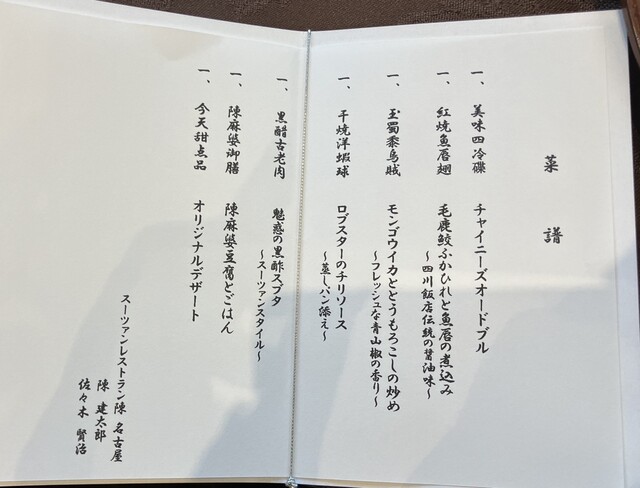 菜譜
一、美味四冷碟 チャイニーズオードブル
一、紅焼魚唇翅 毛鹿鮫ふかひれと魚唇の煮込み
～四川飯店伝統の醤油味～
一、玉蜀黍烏賊 モンゴウイカととうもろこしの炒め
～フレッシュな青山椒の香り～
一、干焼洋蝦球 ロブスターのチリソース
～蒸しパン添え～
一、黒醋古老肉 魅惑の黒酢スブタ
～スーツァンスタイル～
一、陳麻婆御膳 陳麻婆豆腐とごはん
一、今天甜点品 オリジナルデザート
スーツァンレストラン陳 名古屋
陳 建太郎
佐々木 賢治